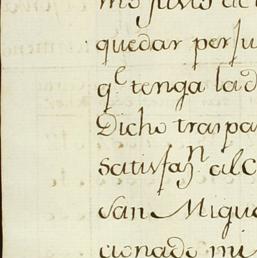 mo justo de
quedar perju
q.e tenga la d
Dicho traspa
satisfan.n al c
San Migue
cionado mi